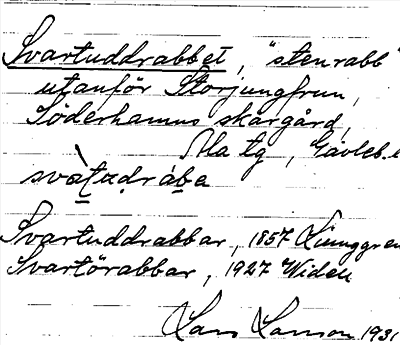 Svartuddrabbet, "stenrabb"
utanför Storjungfrun,
Söderhamns skärgård,
Ala tg, Gävleb. l
svàtụdrába
Svartuddrabbar, 1857 Ljunggren
Svartörabbar, 1927 Widén
Lars Larsson 1931